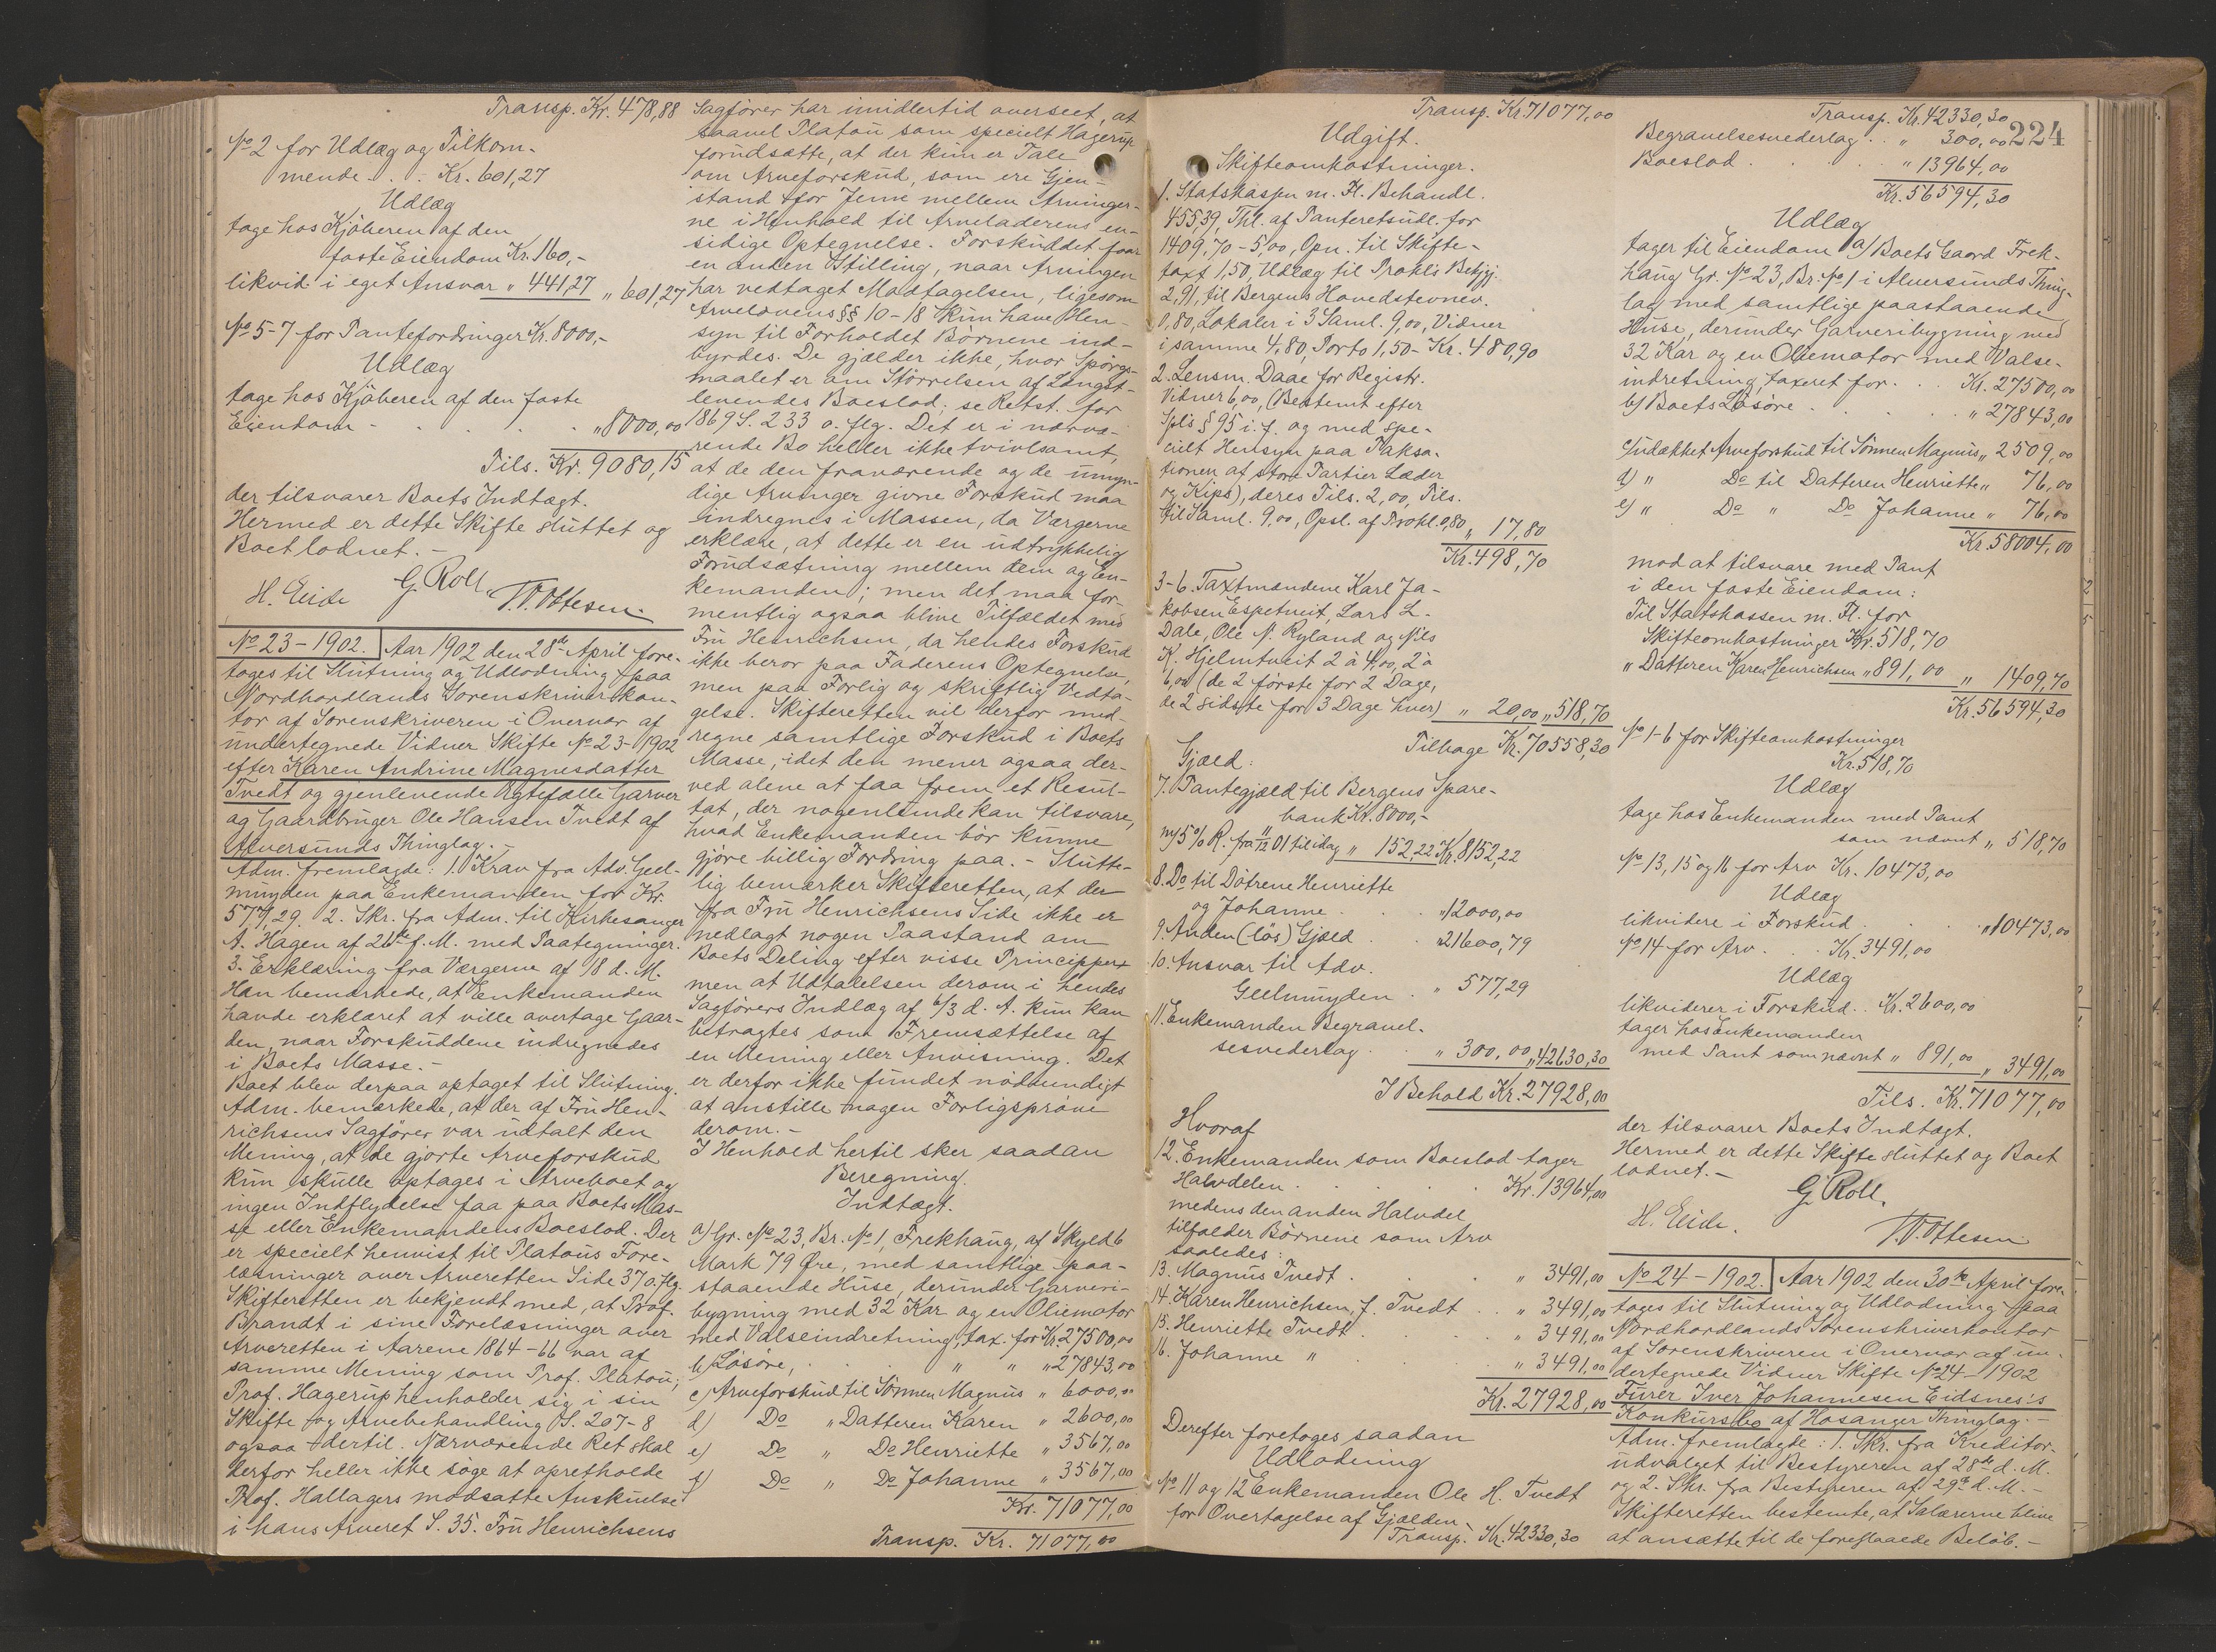 Transp. Kr. 478,88
No 2 for Udlæg og Tilkom-
mende . . . Kr. 601,27
Udlæg
tage hos Kjöberen af den
faste Eiendom Kr. 160,-
likvid. i eget Ansvar " 441,27 " 601,27
No 5-7 for Pantefordringer Kr. 8000,-
Udlæg
tage hos Kjöberen af den faste
Eiendom - . . . . " 8000,00
Tils. Kr. 9080,15
der tilsvarer Boets Indtægt.
Hermed er dette Skifte sluttet og
Boet lodnet. -
G. Roll.
H. Eide
T. Ottesen.
No 23 - 1902. Aar 1902 den 28de April fore-
toges til Slutning og Udlodning paa
Nordhordlands Sorenskriverkon-
tor af Sorenskriveren i Overvær af
undertegnede Vidner Skifte No 23-1902
efter Karen Andrine Magnesdatter
Tvedt og gjenlevende Egtefælle Garver
og Gaardbruger Ole Hansen Tvedt af
Alversunds Thinglag. -
Adm. fremlagde: 1. Krav fra Adv. Geel-
muyden paa Enkemanden for Kr.
577,29. 2. Skr. fra Adm. til Kirkesanger
A. Hagen af 26de f. M. med Paategninger.
3. Erklæring fra Værgerne af 18 d. M.
Han bemærkede, at Enkemanden
havde erklæret at ville overtage Gaar-
den, naar Forskuddene indregnedes
i Boets Masse. -
Boet blev derpaa optaget til Slutning.
Adm. bemærkede, at der af Fru Hen-
richsens Sagförer var udtalt den
Mening, at de gjorte Arveforskud
kun skulle optages i Arveboet og
ingen Indflydelse faa paa Boets Mas-
se eller Enkemandens Boeslod. Der
er specielt henvist til Platous Fore-
læsninger over Arveretten Side 37 o. flg.
Skifteretten er bekjendt med, at Prof.
Brandt i sine Forelæsninger over
Arveretten i Aarene 1864-66 var af
samme Mening som Prof. Platou;
Prof. Hagerup henholder sig i sin
Skifte og Arvebehandling S. 207-8
ogsaa dertil. Nærværende Ret skal
derfor heller ikke söge at opretholde
Prof. Hallagers modsatte Anskuelse
i hans Arveret S. 35. Fru Henrichsens
Sagförer har imidlertid overseet, at
saavel Platou som specielt Hagerup
forudsætte, at der kun er Tale
om Arveforskud, som ere Gjen-
stand for Jevne mellem Arvinger-
ne i Henhold til Arveladerens en-
sidige Optegnelse. Forskuddet faar
en anden Stilling, naar Arvingen
har vedtaget Modtagelsen, ligesom
Arvelovens §§ 10-18 kun have Hen-
syn til Forholdet Börnene ind-
byrdes. De gjælder ikke, hvor Spörgs-
maalet er om Störrelsen af Længst-
levendes Boeslod; se Retst. for
1869 S. 233 o. flg. Det er i nærvæ-
rende Bo heller ikke tvivlsomt,
at de den fraværende og de umyn-
dige Arvinger givne Forskud maa
indregnes i Massen, da Værgerne
erklære, at dette er en udtrykkelig
Forudsætning mellem dem og En-
kemanden; men det maa for-
mentlig ogsaa blive Tilfældet med
Fru Henrichsen, da hendes Forskud
ikke beror paa Faderens Optegnelse,
men paa Forlig og skriftlig Vedta-
gelse. Skifteretten vil derfor med-
regne samtlige Forskud i Boets
Masse, idet den mener ogsaa der-
ved alene at faa frem et Resul-
tat, der nogenlunde kan tilsvare,
hvad Enkemanden bör kunne
gjöre billig Fordring paa. - Slutte-
lig bemærker Skifteretten, at der
fra Fru Henrichsens Side ikke er
nedlagt nogen Paastand om
Boets Deling efter visse Principper
men at Udtalelsen derom i hendes
Sagförers Indlæg af 6/3 d. A. kun kan
betragtes som Fremsættelse af
en Mening eller Anvisning. Det
er derfor ikke fundet nödvendigt
at anstille nogen Forligspröve
derom. -
I Henhold hertil sker saadan
Beregning.
Indtægt.
a) Gr. No 23, Br. No 1, Frekhaug, af Skyld 6
Mark 79 Öre, med samtlige paa-
staaende Huse, derunder Garveri-
bygning med 32 Kar og en Oliemotor
med Valseindretning, tax. for Kr. 27500,00
b) Lösöre, . . " " " 27843,00
c) Arveforskud til Sönnen Magnus " 6000,00
d) Do " Datteren Karen " 2600,00
e) Do " Do Henriette " 3567,00
f) Do " Do Johanne " 3567,00
Kr. 71077,00
Transp. Kr. 71077,00
Transp. Kr. 71077,00
Udgift.
Skifteomkostninger.
1. Statskassen m. Fl. Behandl.
455,39, Thl. af Panteretsudl. for
1409,70 - 5,00, Opn. til Skifte-
taxt 1,50, Udlæg til Prokl's Bekjgj.
2,91, til Bergens Hovedstevnev.
0,80, Lokaler i 3 Saml. 9,00, Vidner
i samme 4,80, Porto 1,50 - Kr. 480,90
2. Lensm. Daae for Registr.
Vidner 6,00, (Bestemt efter
Spls § 95 i. f. og med spe-
cielt Hensyn paa Taksa-
tionen af store Partier Læder
og Kips), deres Tils. 2,00, Tils.
til Saml. 9,00, Opsl. af Prokl. 0,80 " 17,80
Kr. 498,70
3-6. Taxtmændene Karl Ja-
kobsen Espetveit, Lars L.
Dale, Ole N. Ryland og Nils
K. Hjelmtveit 2 à 4,00, 2 à
6,00 (de 2 förste for 2 Dage,
de 2 sidste for 3 Dage hver) " 20,00 " 518,70
Tilbage Kr. 70558,30
Gjæld:
7. Pantegjæld til Bergens Spare-
bank Kr. 8000,-
m/ 5% R. fra 11/12 01 til idag " 152,22 Kr. 8152,22
8. Do til Döttrene Henriette
og Johanne . . . " 12000,00
9. Anden (lös) Gjæld . . " 21600,79
10. Ansvar til Adv.
Geelmuyden . " 577,29
11. Enkemanden Begravel-
sesvederlag . . " 300,00 " 42630,30
I Behold Kr. 27928,00
Hvoraf
12. Enkemanden som Boeslod tager
Halvdelen . . . . Kr. 13964,00
medens den anden Halvdel
tilfalder Börnene som Arv
saaledes:
13. Magnus Tvedt . . . " 3491,00
14. Karen Henrichsen, f. Tvedt . " 3491,00
15. Henriette Tvedt . . . " 3491,00
16. Johanne " . . . " 3491,00
Kr. 27928,00
Derefter foretoges saadan
Udlodning
No 11 og 12 Enkemanden Ole H. Tvedt
for Overtagelse af Gjælden
Transp. Kr. 42330,30
Transp. Kr. 42330,30
224
Begravelsesvederlag . . " 300,00
Boeslod . . . . " 13964,00
Kr. 56594,30
Udlæg
tager til Eiendom a/ Boets Gaard Frek-
haug Gr. No 23, Br. No 1 i Alversunds Thing-
lag med samtlige paastaaende
Huse, derunder Garveribygning med
32 Kar og en Oliemotor med Valse-
indretning, taxeret for . . Kr. 27500,00
b/ Boets Lösöre . . . . " 27843,00
c/ udækket Arveforskud til Sönnen Magnus " 2509,00
d/ " Do til Datteren Henriette " 76,00
e/ " Do " Do Johanne " 76,00
Kr. 58004,00
mod at tilsvare med Pant
i den faste Eiendom:
Til Statskassen m. Fl. for
Skifteomkostninger Kr. 518,70
" Datteren Karen Henrichsen " 891,00 " 1409,70
Kr. 56594,30
No 1-6 for Skifteomkostninger
Kr. 518,70
Udlæg
tage hos Enkemanden med Pant
som nævnt " 518,70
No 13, 15 og 16 for Arv Kr. 10473,00
Udlæg
likvidere i Forskud . . . " 10473,00
No 14 for Arv . . Kr. 3491,00
Udlæg
likviderer i Forskud . . Kr. 2600,00
tager hos Enkemanden
med Pant som nævnt " 891,00 " 3491,00
Tils. Kr. 71077,00
der tilsvarer Boets Indtægt.
Hermed er dette Skifte sluttet og Boet
lodnet. -
G. Roll.
H. Eide.
T. Ottesen
No 24 - 1902. Aar 1902 den 30te April fore-
toges til Slutning og Udlodning paa
Nordhordlands Sorenskriverkontor
af Sorenskriveren i Overvær af un-
dertegnede Vidner Skifte No 24 - 1902
Furer Iver Johannesen Eidsnes's
Konkursbo af Hosanger Thinglag. -
Adm. fremlagde: 1. Skr. fra Kreditor-
udvalget til Bestyreren af 28de d. M.
og 2. Skr. fra Bestyreren af 29de d. M. -
Skifteretten bestemte, at Salærerne blive
at ansætte til de foreslaaede Belöb. -